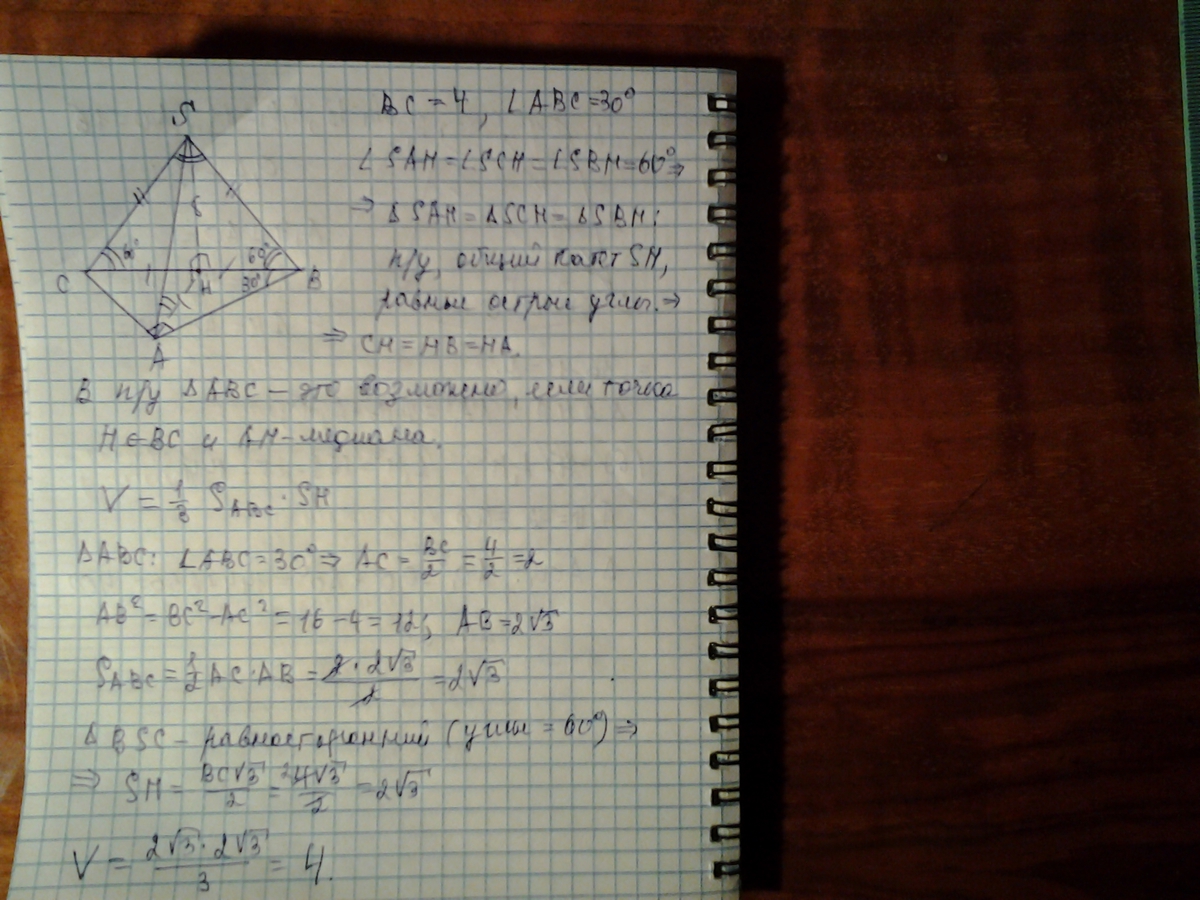 S
BC = 4, ∠ABC = 30°
∠SAH = ∠SCH = ∠SBH = 60° ⇒
⇒ ΔSAH = ΔSCH = ΔSBH:
п/у, общий катет SH,
60° 60°
C H 30° B
равные острые углы. ⇒
A
⇒ CH = HB = HA.
В п/у ΔABC – это возможно, если точка
H ∈ BC и AH – медиана.
V = 1/3 S_ABC · SH
ΔABC: ∠ABC = 30° ⇒ AC = BC/2 = 4/2 = 2
AB² = BC² - AC² = 16 - 4 = 12; AB = 2√3
S_ABC = 1/2 AC · AB = 2 · 2√3 / 2 = 2√3
ΔBSC – равносторонний (углы = 60°) ⇒
⇒ SH = BC√3 / 2 = 4√3 / 2 = 2√3
V = 2√3 · 2√3 / 3 = 4.